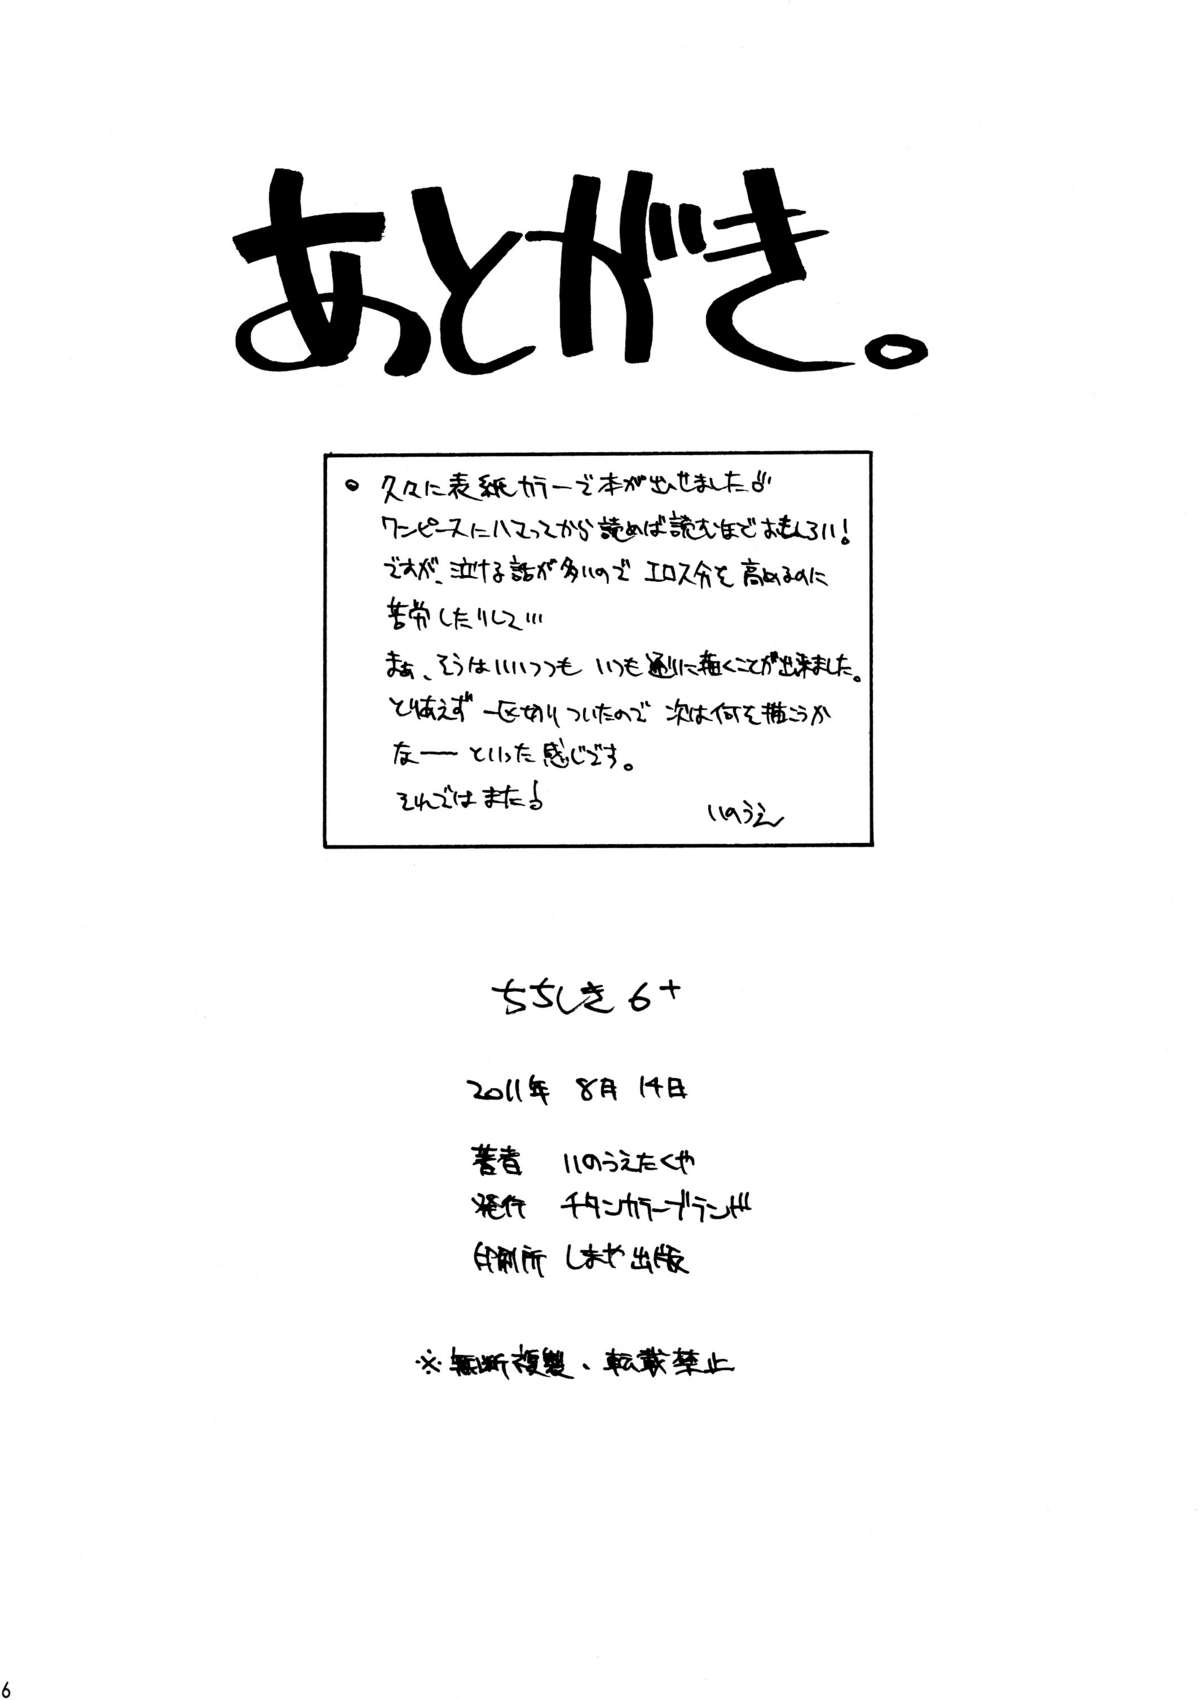 あとがき。
。久々に表紙カラーで本が出せました♪
ワンピースにハマってから読めば読むほどおもしろい!
ですが、泣ける話が多いのでエロス分を高めるのに
苦労したりして…
まぁ、そうはいいつつもいつも通りに描くことが出来ました。
とりあえず一区切りついたので次は何を描こうか
な――といった感じです。
それではまた♪
いのうえ
ちちしき6+
2011年 8月 14日
著者 いのうえたくや
発行 チタンカラーブランド
印刷所 しまや出版
※無断複製、転載禁止
6